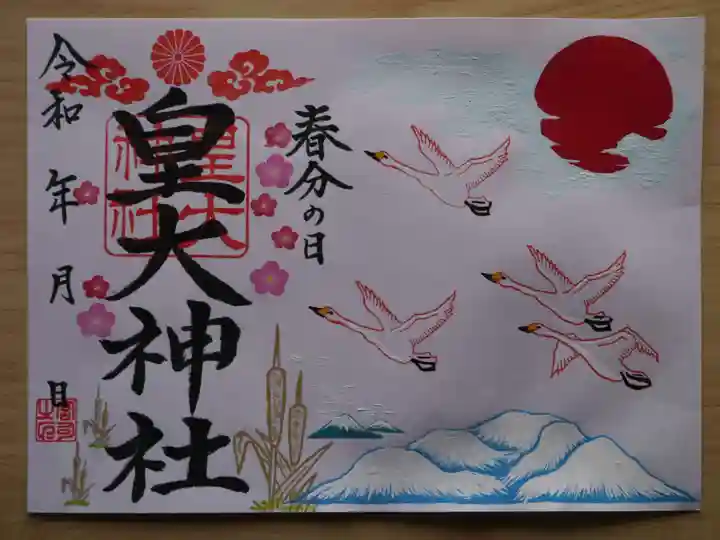 春分の日
皇大神社
皇大神社
令和 年 月 日